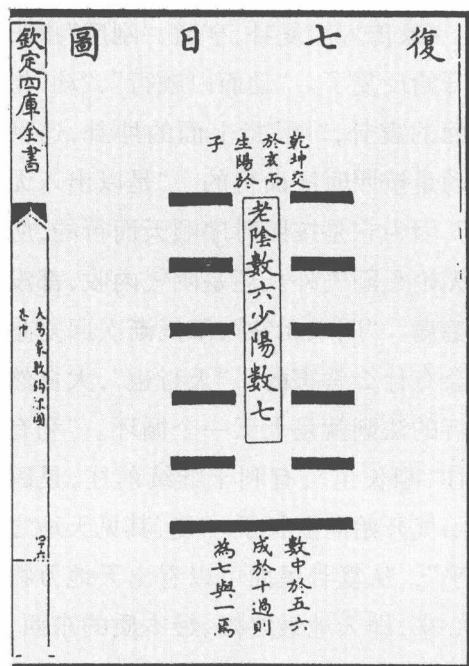 復七日圖
乾坤交
於亥而
生陽於
子
老陰數六少陽數七
數中於五六
成於十過則
為七與一焉
欽定四庫全書
大易象數鉤深圖
卷中